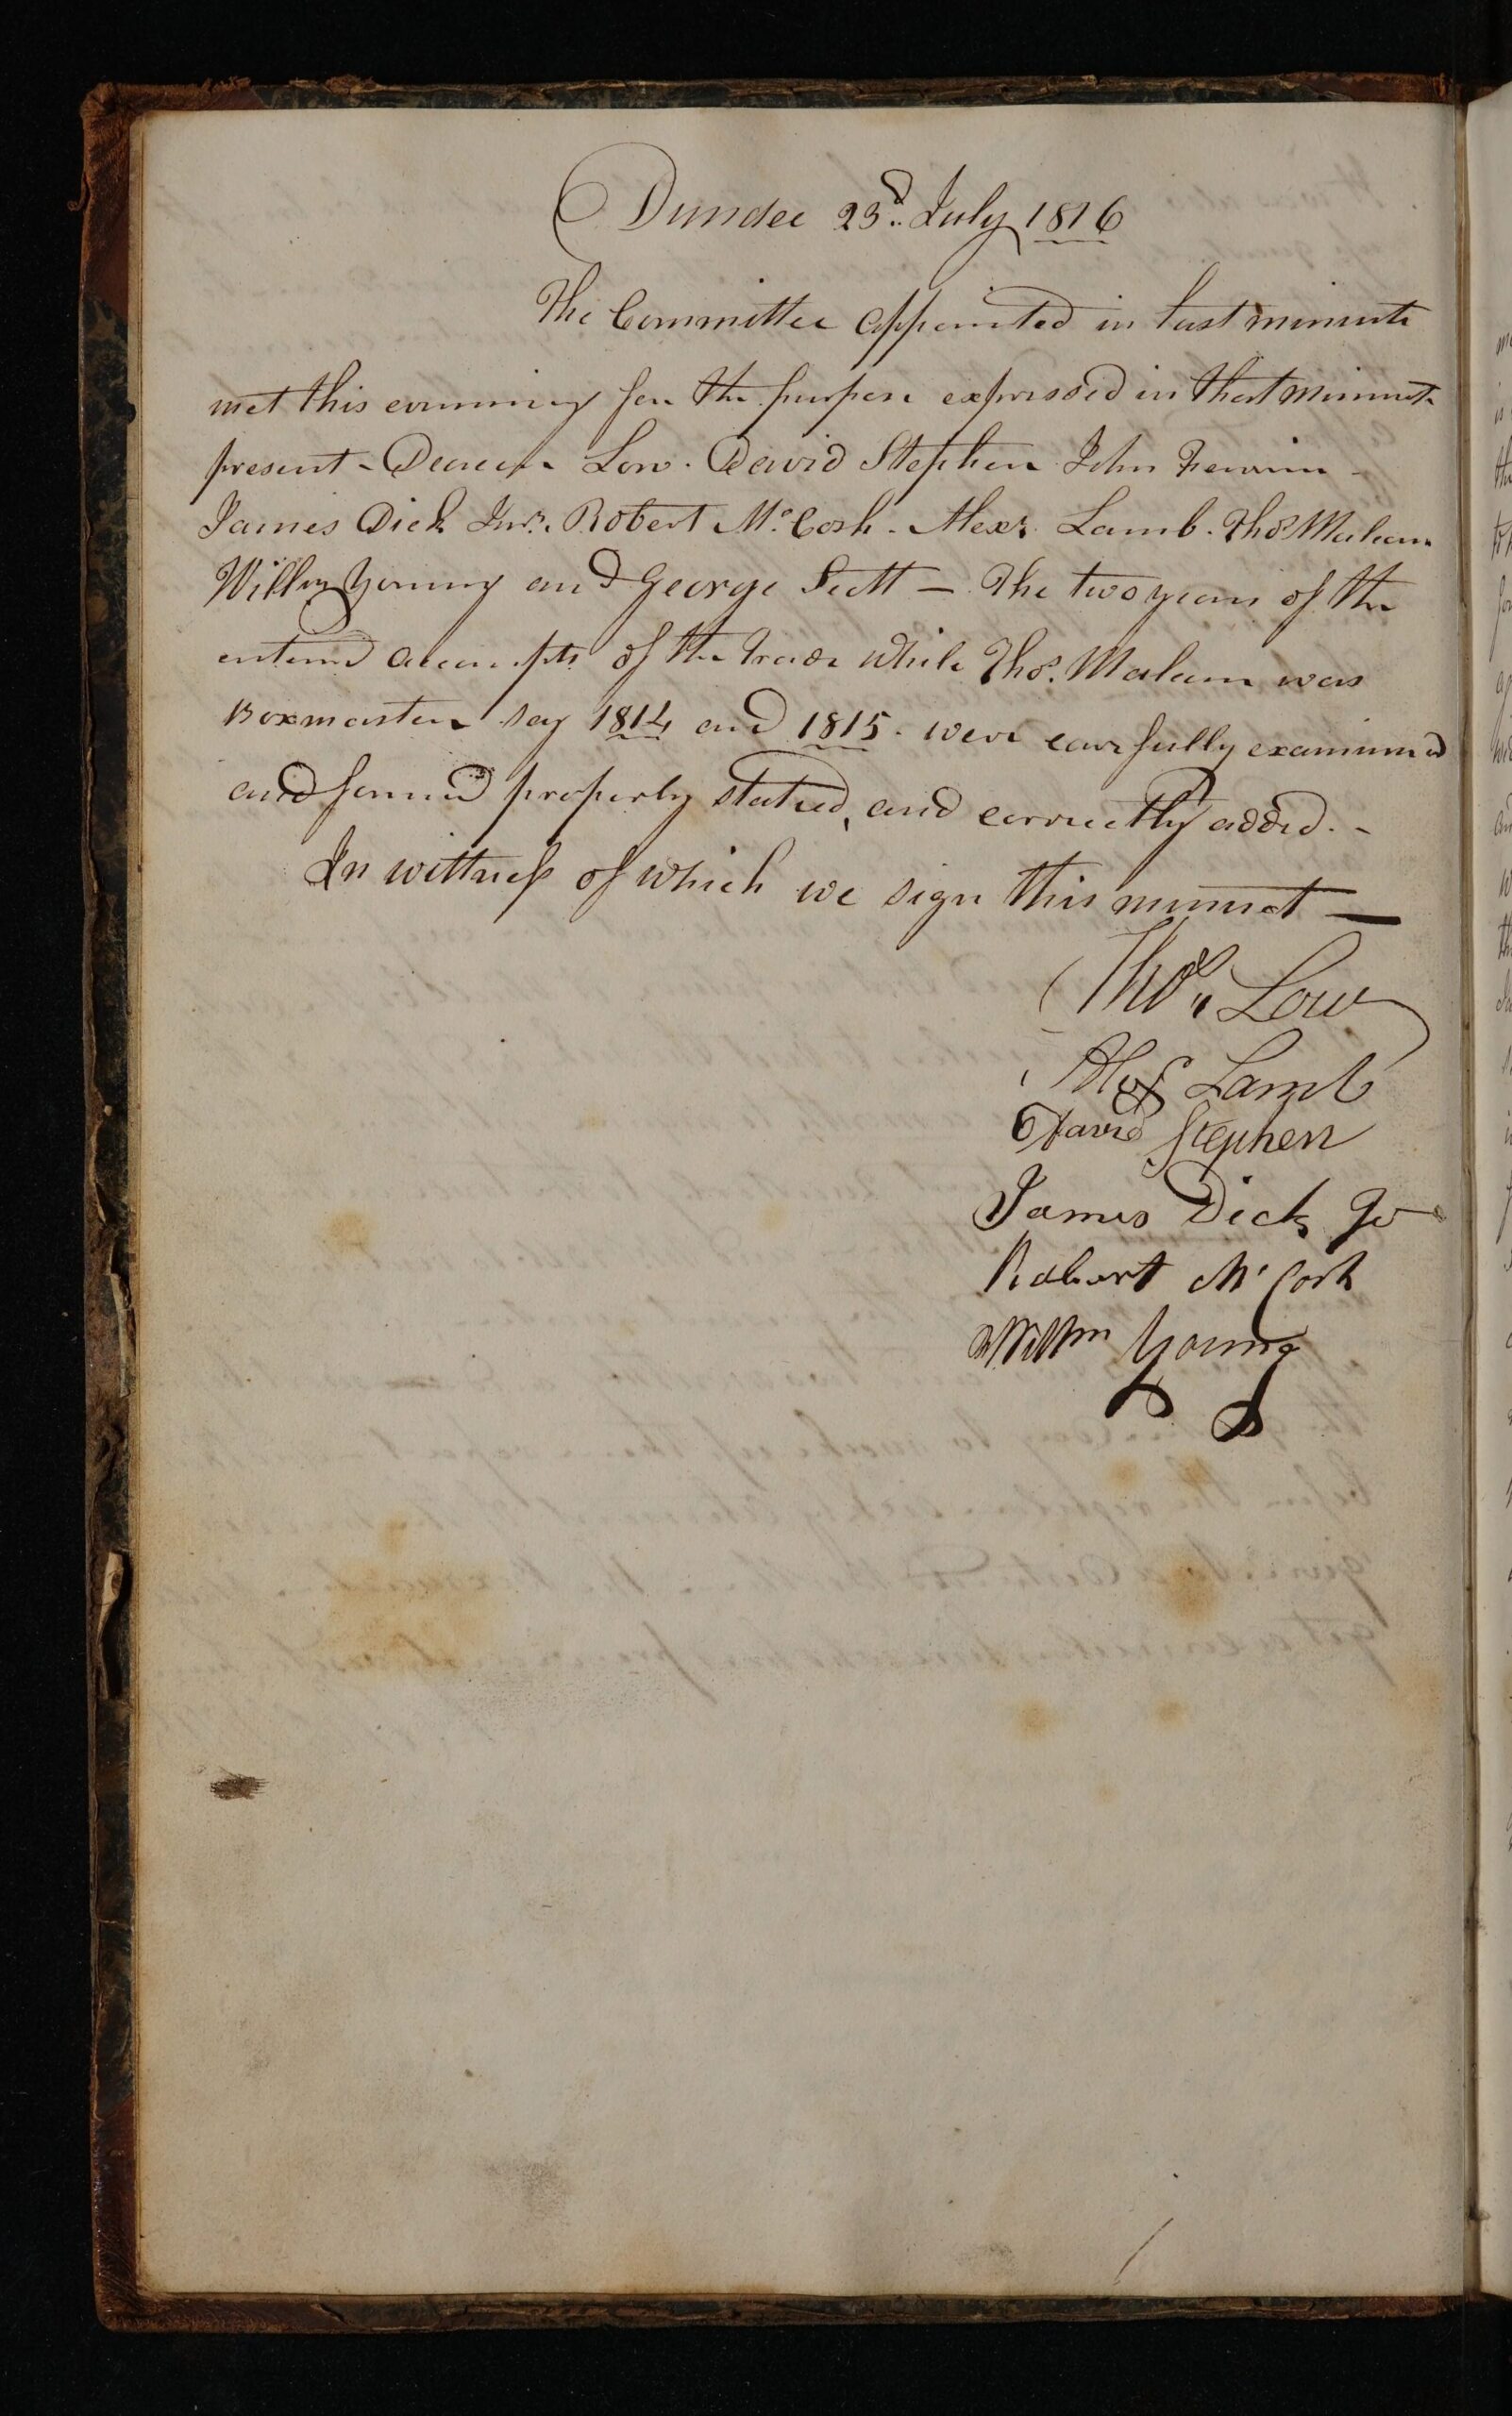 Dundee 23d. July 1816
The Committee appointed in last minute
met this evening for the purpose expressed in that minute
present - Deacon Low. David Stephen John
James Dick Junr. Robert McCosh. Alexr. Lamb. Thos Malcum
Willm Young and George Scott — The two years of the
enterd accompts of the trade while Thos. Malcum was
Boxmaster say 1814 and 1815. were carefully examined
and found properly stated, and correctly added. -
In wittness of which we sign this minuet —
Thos. Low
Alexr Lamb
David Stephen
James Dick Jr
Robert McCosh
Willm Young